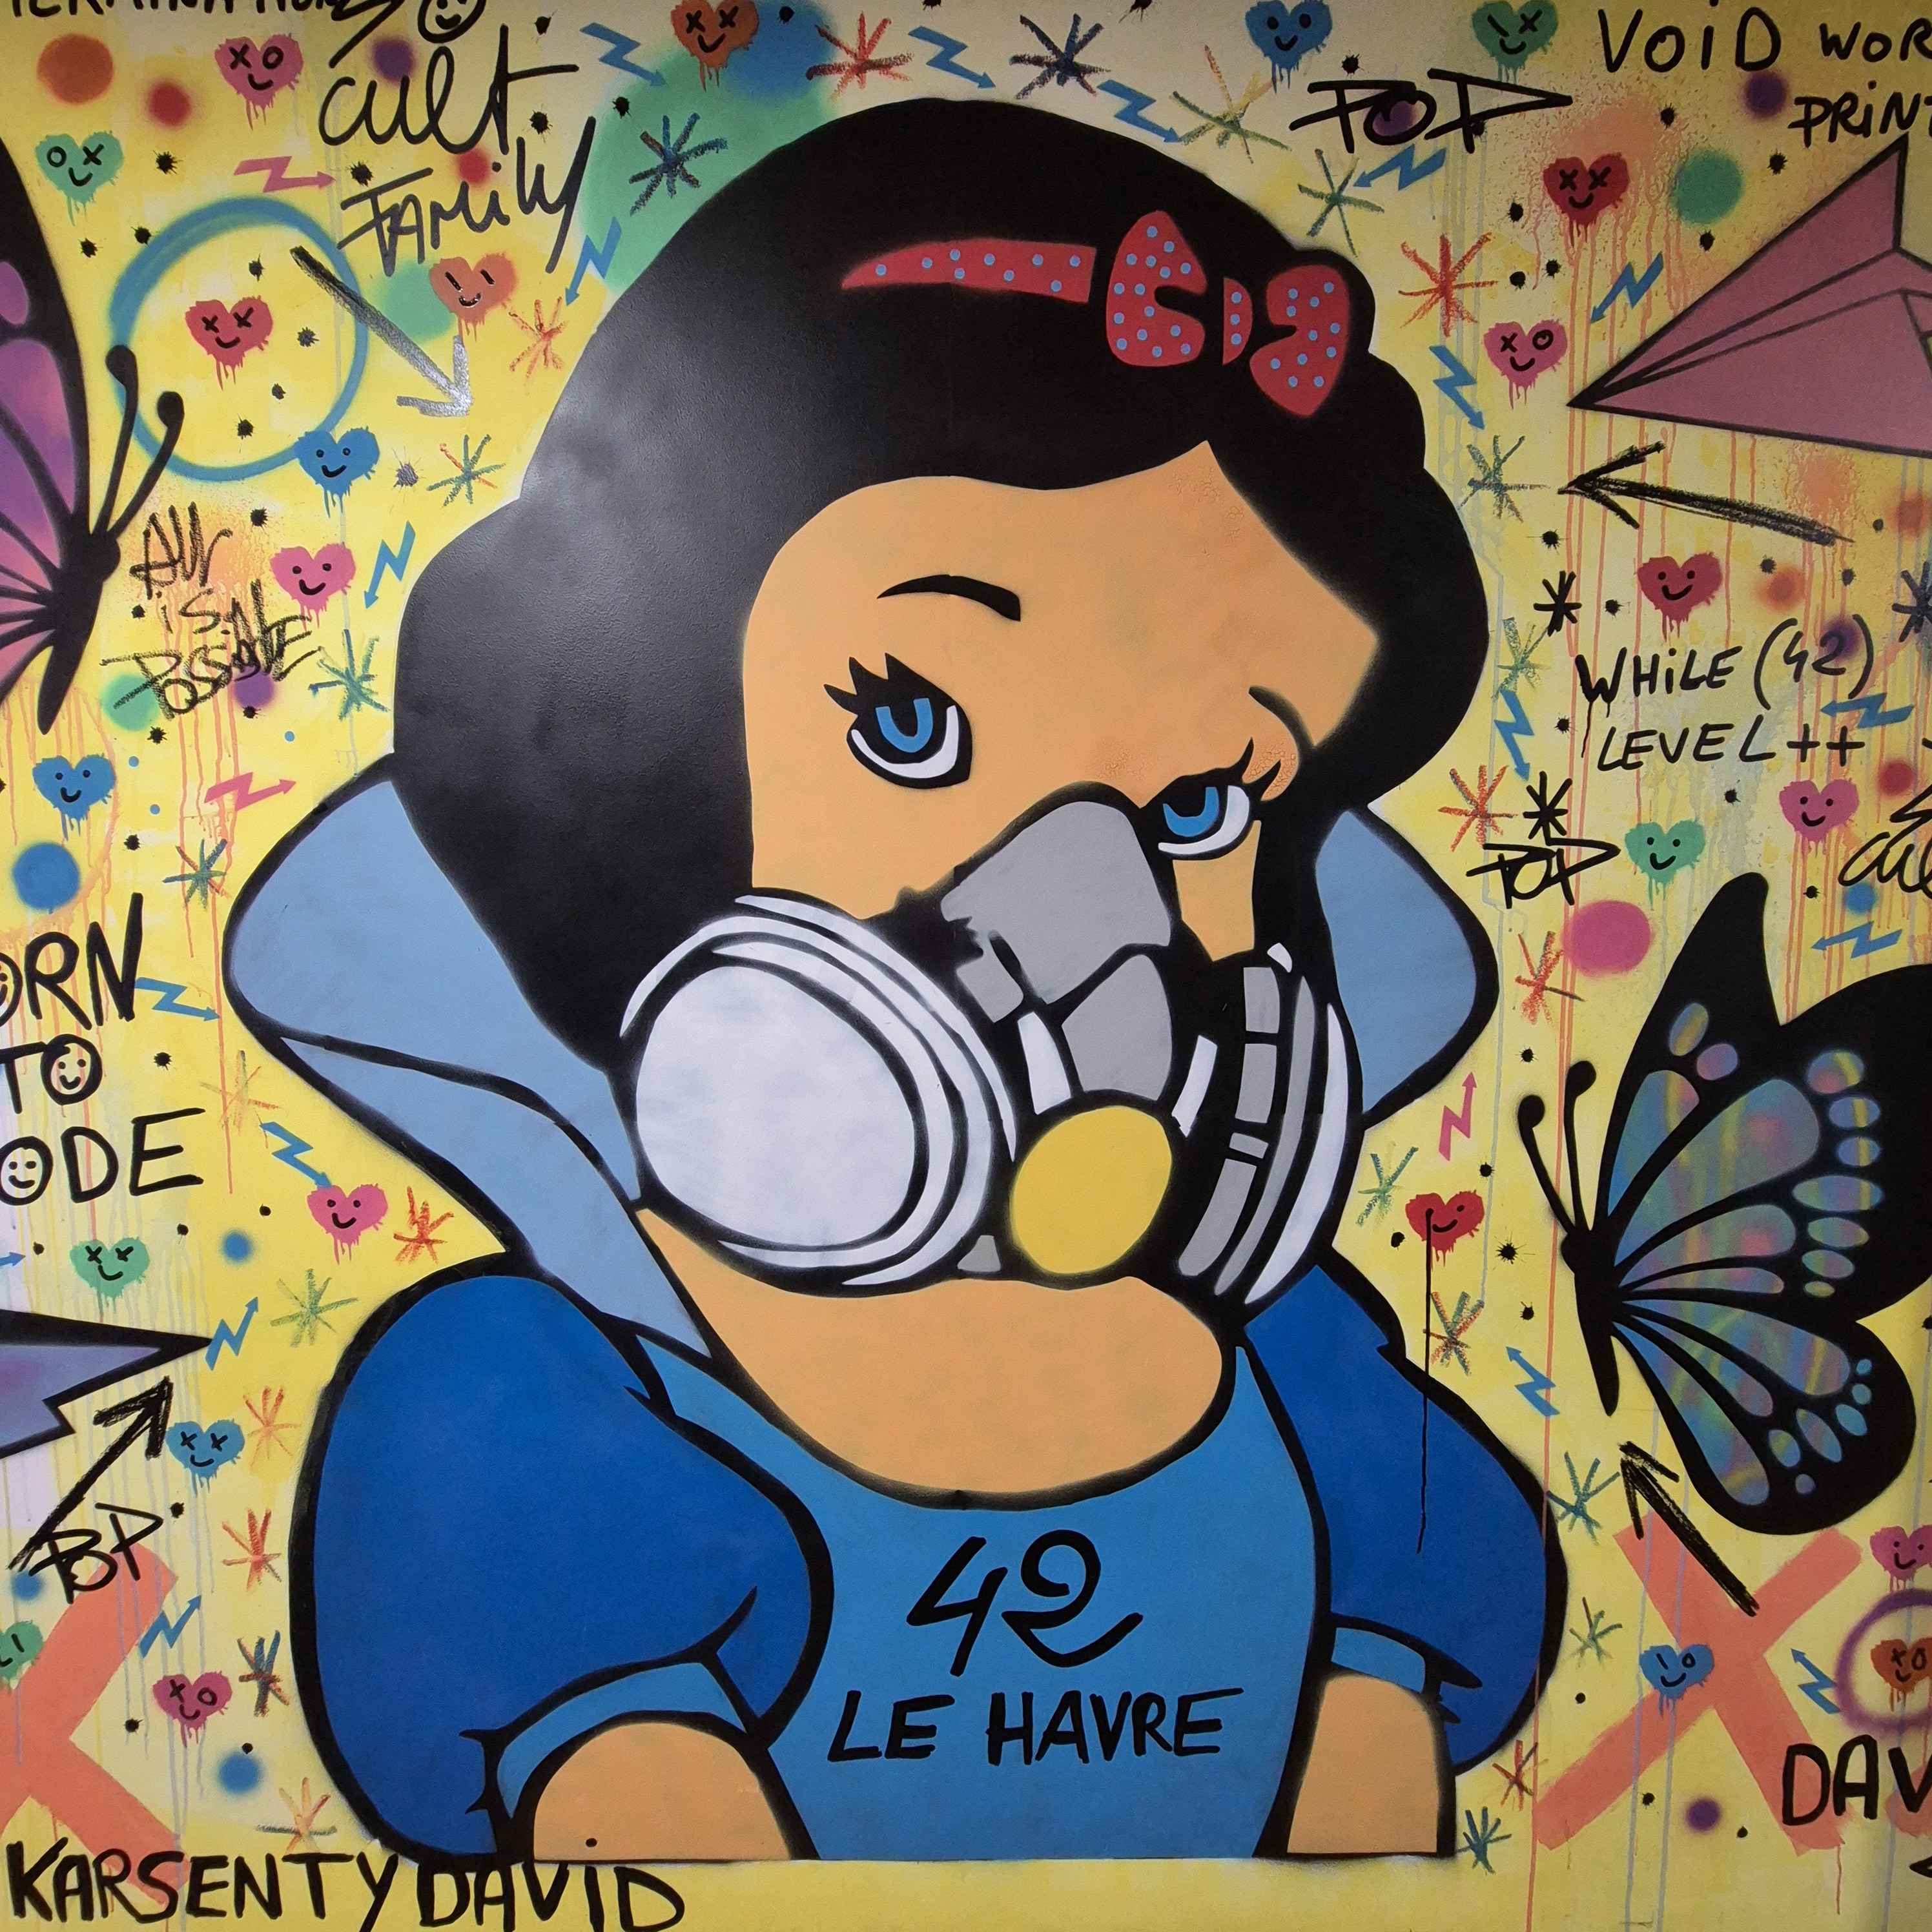 cult
Family
POP
VOID WOR
PRINT
ALL
IS
POSSIBLE
WHILE (42)
LEVEL++
POP
ORN
TO
ODE
POP
42
LE HAVRE
DAV
KARSENTY DAVID